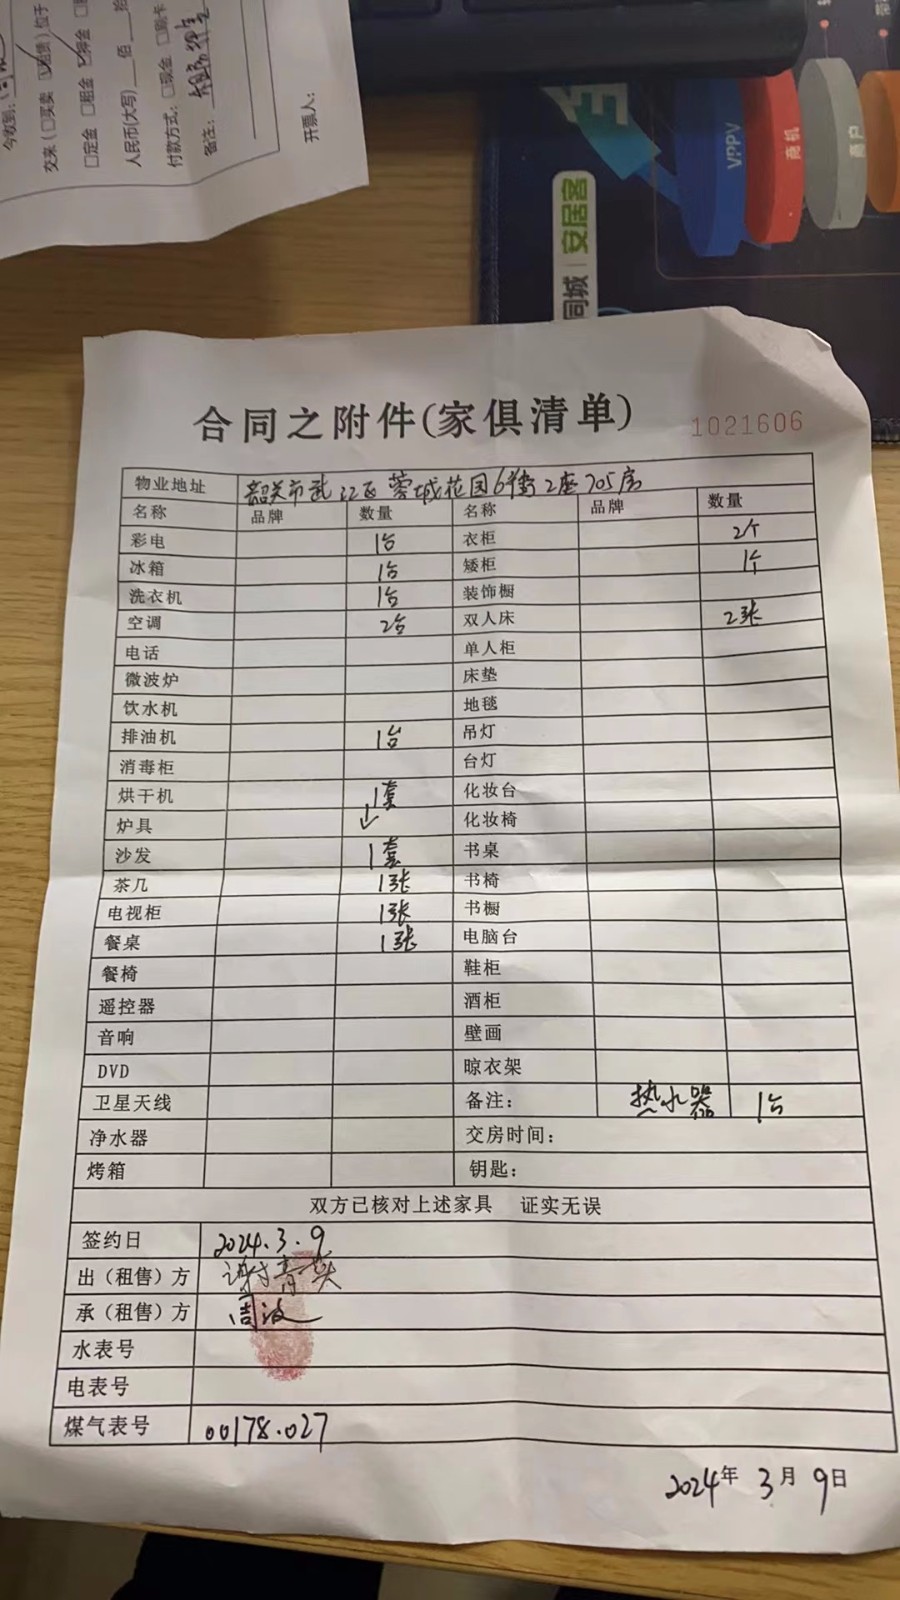 今收到:
交来(□买卖 ☑租赁)位于
□定金 □租金 ☑押金
人民币(大写)___佰___拾
付款方式: □现金 □刷卡
备注:
开票人:
VPPV
商机
同城 | 安居客
合同之附件(家俱清单)
1021606
物业地址 韶关市武江区蓉城花园6街2座705房
名称 品牌 数量 名称 品牌 数量
彩电 1台 衣柜 2个
冰箱 1台 矮柜 1个
洗衣机 1台 装饰橱
空调 2台 双人床 2张
电话 单人柜
微波炉 床垫
饮水机 地毯
排油机 1台 吊灯
消毒柜 台灯
烘干机 1套 化妆台
炉具 ↓ 化妆椅
沙发 1套 书桌
茶几 1张 书椅
电视柜 1张 书橱
餐桌 1张 电脑台
餐椅 鞋柜
遥控器 酒柜
音响 壁画
DVD 晾衣架
卫星天线 备注: 热水器 1台
净水器 交房时间:
烤箱 钥匙:
双方已核对上述家具 证实无误
签约日 2024.3.9
出(租售)方
承(租售)方 周波
水表号
电表号
煤气表号 00178.027
2024年3月9日